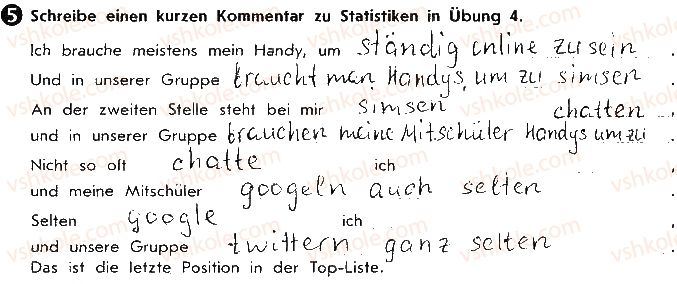 5 Schreibe einen kurzen Kommentar zu Statistiken in Übung 4.
Ich brauche meistens mein Handy, um ständig online zu sein.
Und in unserer Gruppe braucht man Handys, um zu simsen.
An der zweiten Stelle steht bei mir simsen chatten,
und in unserer Gruppe brauchen meine Mitschüler Handys um zu.
Nicht so oft chatte ich
und meine Mitschüler googeln auch selten.
Selten google ich
und unsere Gruppe twittern ganz selten.
Das ist die letzte Position in der Top-Liste.